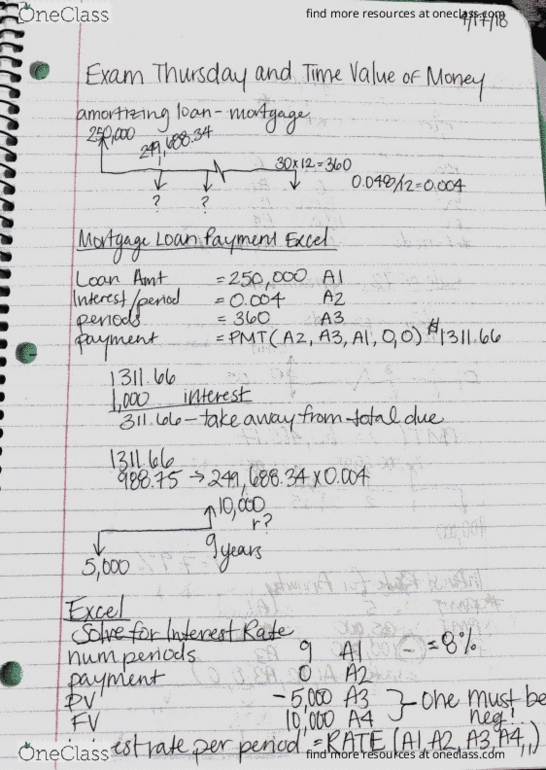 OneClass
find more resources at oneclass.com
9/17/18
Exam Thursday and Time Value of Money
amortizing loan - mortgage
250,000
249,688.34
30x12=360
0.048/12=0.004
? ?
Mortgage Loan Payment Excel
Loan Amt = 250,000 A1
Interest/period = 0.004 A2
periods = 360 A3
payment = PMT(A2, A3, A1, 0,0) $1311.66
1311.66
1,000 interest
311.66 - take away from total due
1311.66
988.75 → 249,688.34 x 0.004
10,000
r?
9 years
5,000
Excel
Solve for Interest Rate
num periods 9 A1 - = 8%
payment 0 A2
PV -5,000 A3 } - one must be
FV 10,000 A4 neg!
est rate per period = RATE (A1, A2, A3, A4,,)
OneClass
find more resources at oneclass.com